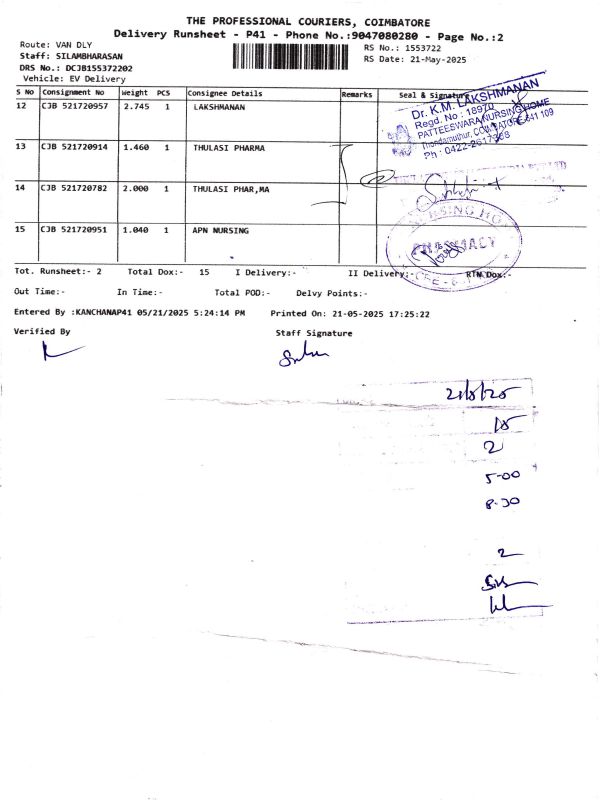 THE PROFESSIONAL COURIERS, COIMBATORE
Delivery Runsheet - P41 - Phone No.:9047080280 - Page No.:2
Route: VAN DLY
Staff: SILAMBHARASAN
DRS No.: DCJB155372202
Vehicle: EV Delivery
RS No.: 1553722
RS Date: 21-May-2025
S No Consignment No Weight PCS Consignee Details Remarks Seal & Signature
12 CJB 521720957 2.745 1 LAKSHMANAN
Dr. K.M. LAKSHMANAN
Regd. No : 18970
PATTEESWARA NURSING HOME
Thondamuthur, COIMBATORE-641 109
13 CJB 521720914 1.460 1 THULASI PHARMA
14 CJB 521720782 2.000 1 THULASI PHAR,MA
15 CJB 521720951 1.040 1 APN NURSING
NURSING HO
PHARMACY
Tot. Runsheet:- 2 Total Dox:- 15 I Delivery:- II Delivery:- RTN Dox:-
Out Time:- In Time:- Total POD:- Delvy Points:-
Entered By :KANCHANAP41 05/21/2025 5:24:14 PM Printed On: 21-05-2025 17:25:22
Verified By Staff Signature
21/5/25
15
2
5-00
8-30
2